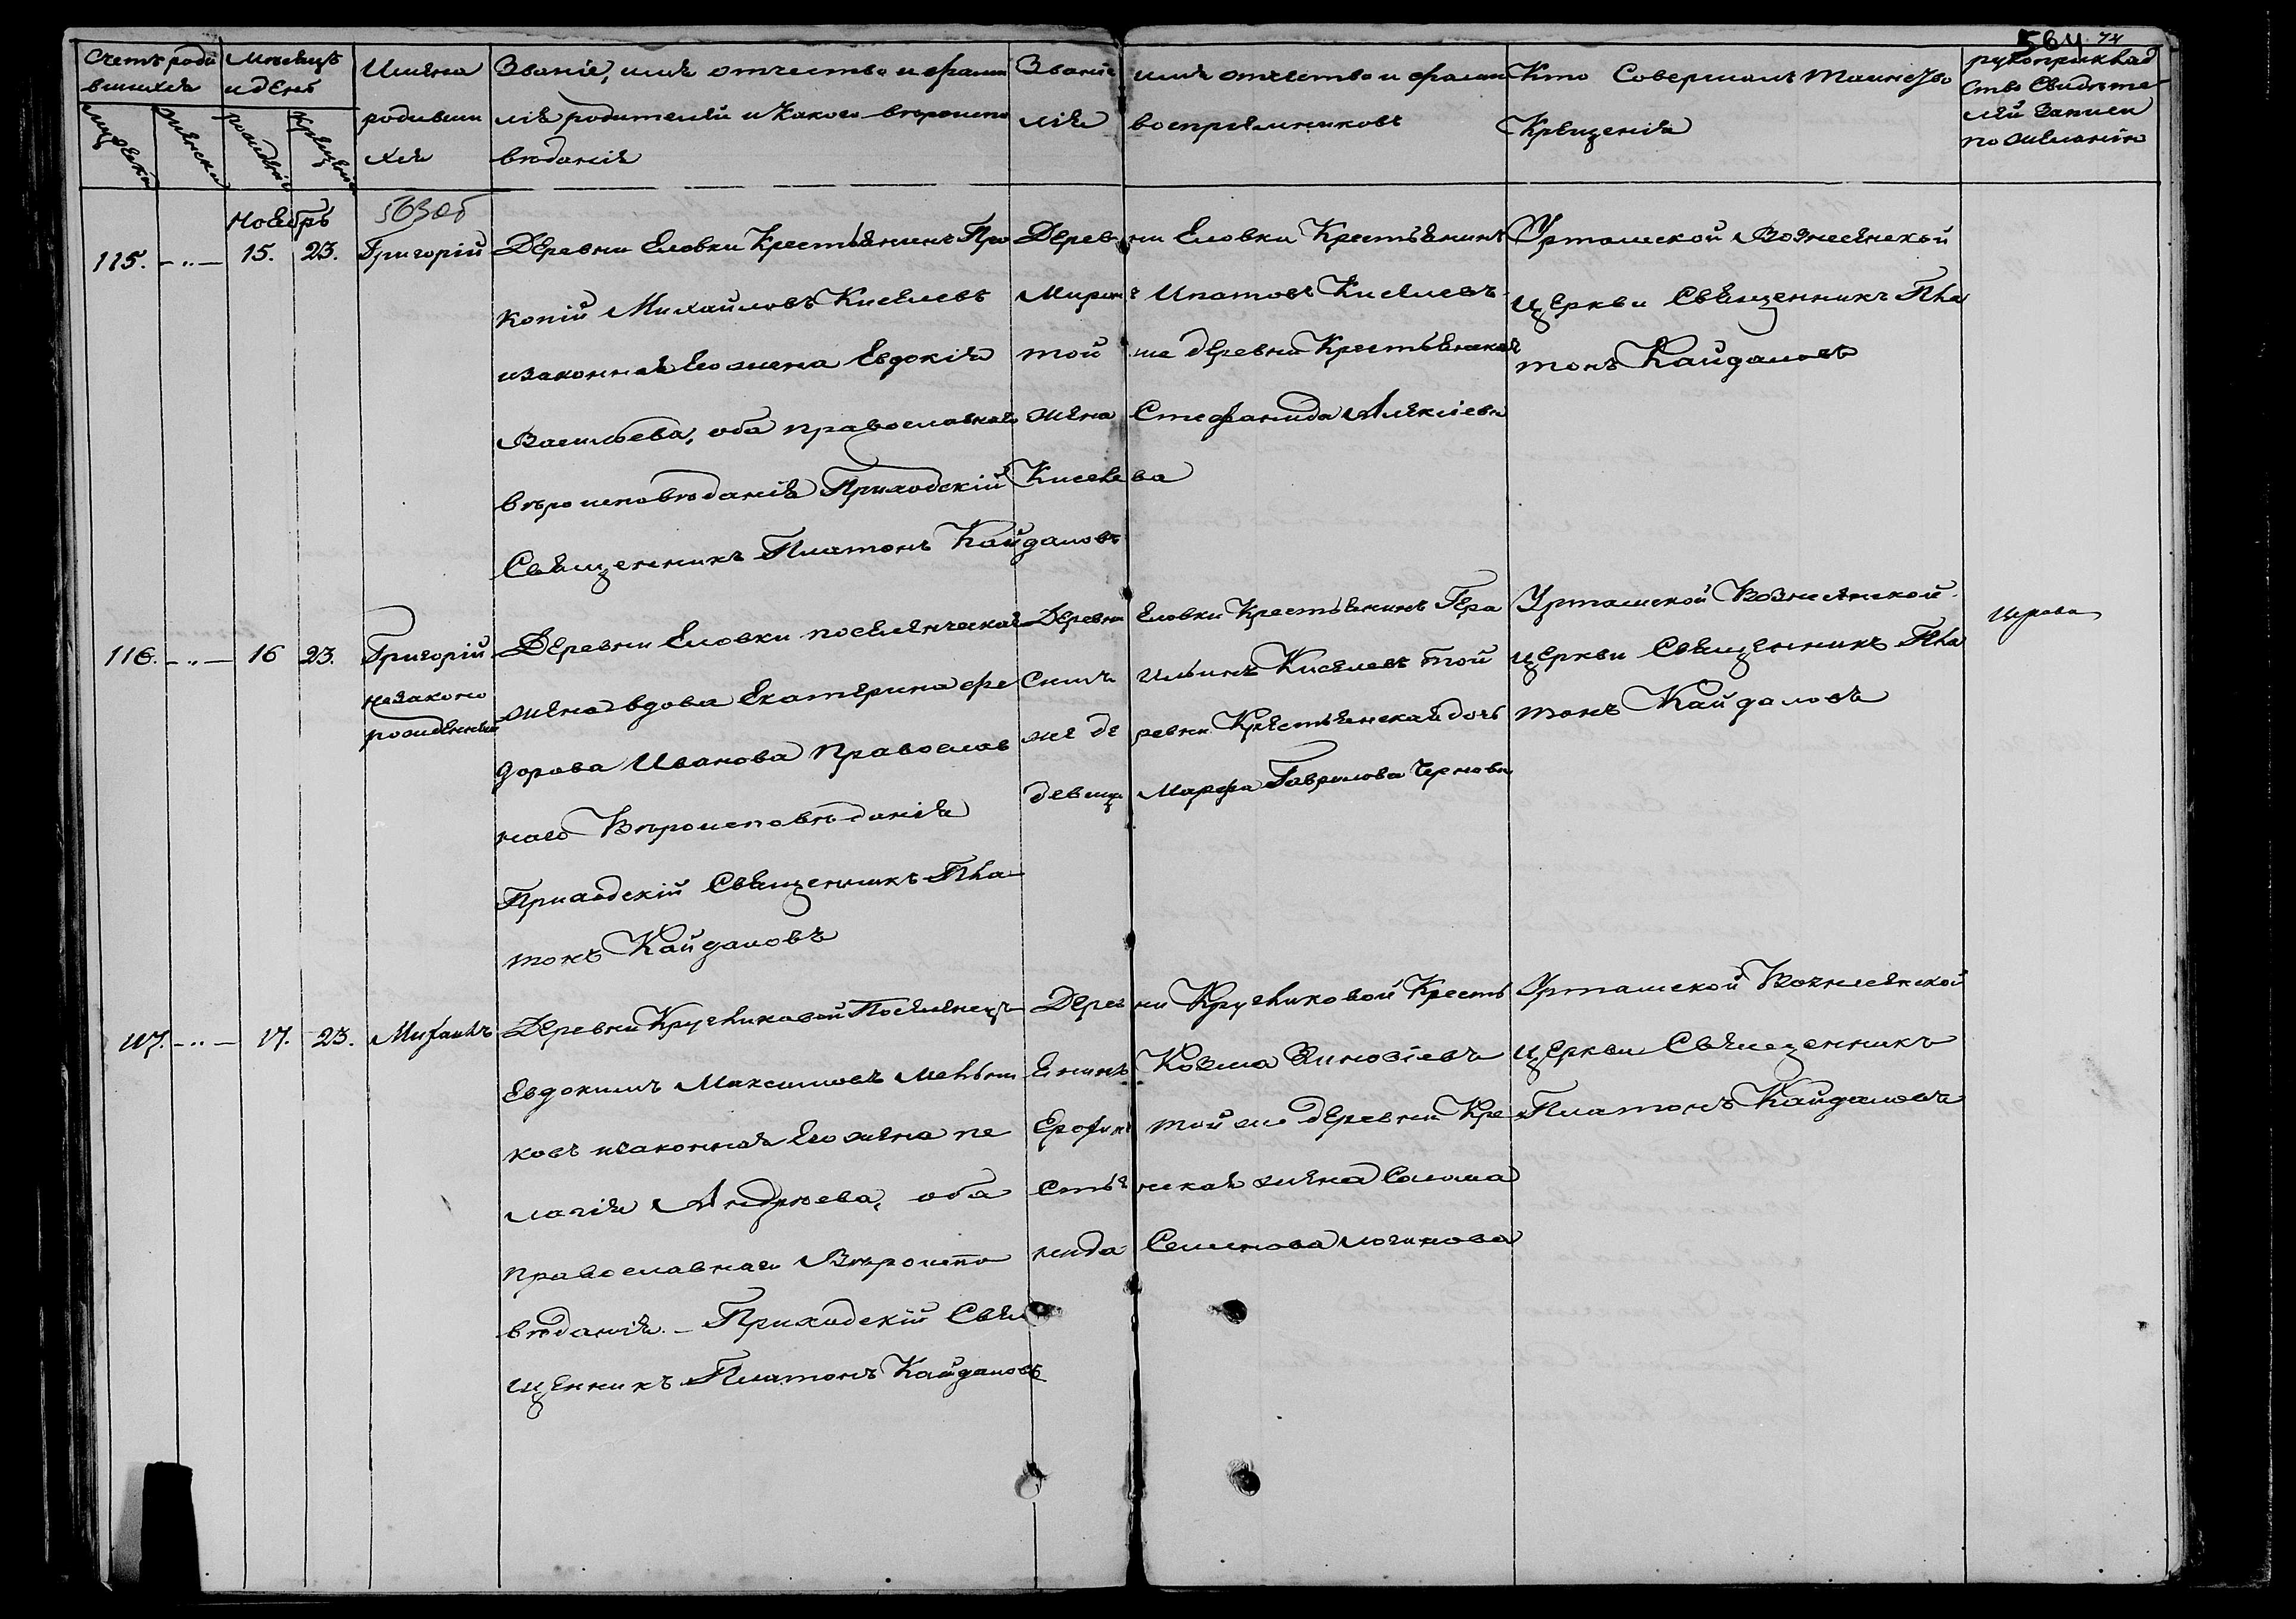 564 74
Счетъ роди
вшихся
мужеска
женска
Мѣсяцъ
и день
рожденія
крещенія
Имяна
родивши
хся
Званіе, имя отчество и фами
лія родителей и какого вѣроиспо
вѣданія
Званіе имя отчество и фами
лія воспріемниковъ
Кто Совершалъ таинство
Крещенія
рукоприклад
ство Свидѣте
лей записи
по желанію
563об
Ноябрь
115. —"— 15. 23. Григорій
Деревни Еловки Крестьянинъ Про
копій Михайловъ Киселевъ
и законная Его жена Евдокія
Васильева, оба православнаго
вѣроисповѣданія Приходскій
Священникъ Платонъ Кайдаловъ
Деревни Еловки Крестьянинъ
Миронъ Ипатовъ Киселевъ
той же деревни Крестьянская
жена Стефанида Алексіева
Киселева
Урталиской Вознесенской
Церкви Священникъ Пла
тонъ Кайдаловъ
116. —"— 16 23. Григорій
незаконо
рожденный
Деревни Еловки поселенческая
жена вдова Екатерина Фе
дорова Иванова Православ
наго Вѣроисповѣданія
Приходскій Священникъ Пла
тонъ Кайдаловъ
Деревни Еловки Крестьянинъ Гера
симъ Ильинъ Киселевъ той
же деревни Крестьянская дочь
девица Марфа Гаврилова Чернова
Урталиской Вознесенской
Церкви Священникъ Пла
тонъ Кайдаловъ
117. —"— 17. 23. Михаилъ
Деревни Кругликовой Поселенецъ
Евдокимъ Максимовъ Меньши
ковъ и законная Его жена Пе
лагія Андреева, оба
православнаго Вѣроиспо
вѣданія. – Приходскій Свя
щенникъ Платонъ Кайдаловъ
Деревни Кругликовой Кресть
янинъ Козма Зиновіевъ
Ерофи той же деревни Кре
стьянская жена Солома
нида Семенова Логинова
Урталиской Вознесенской
Церкви Священникъ
Платонъ Кайдаловъ